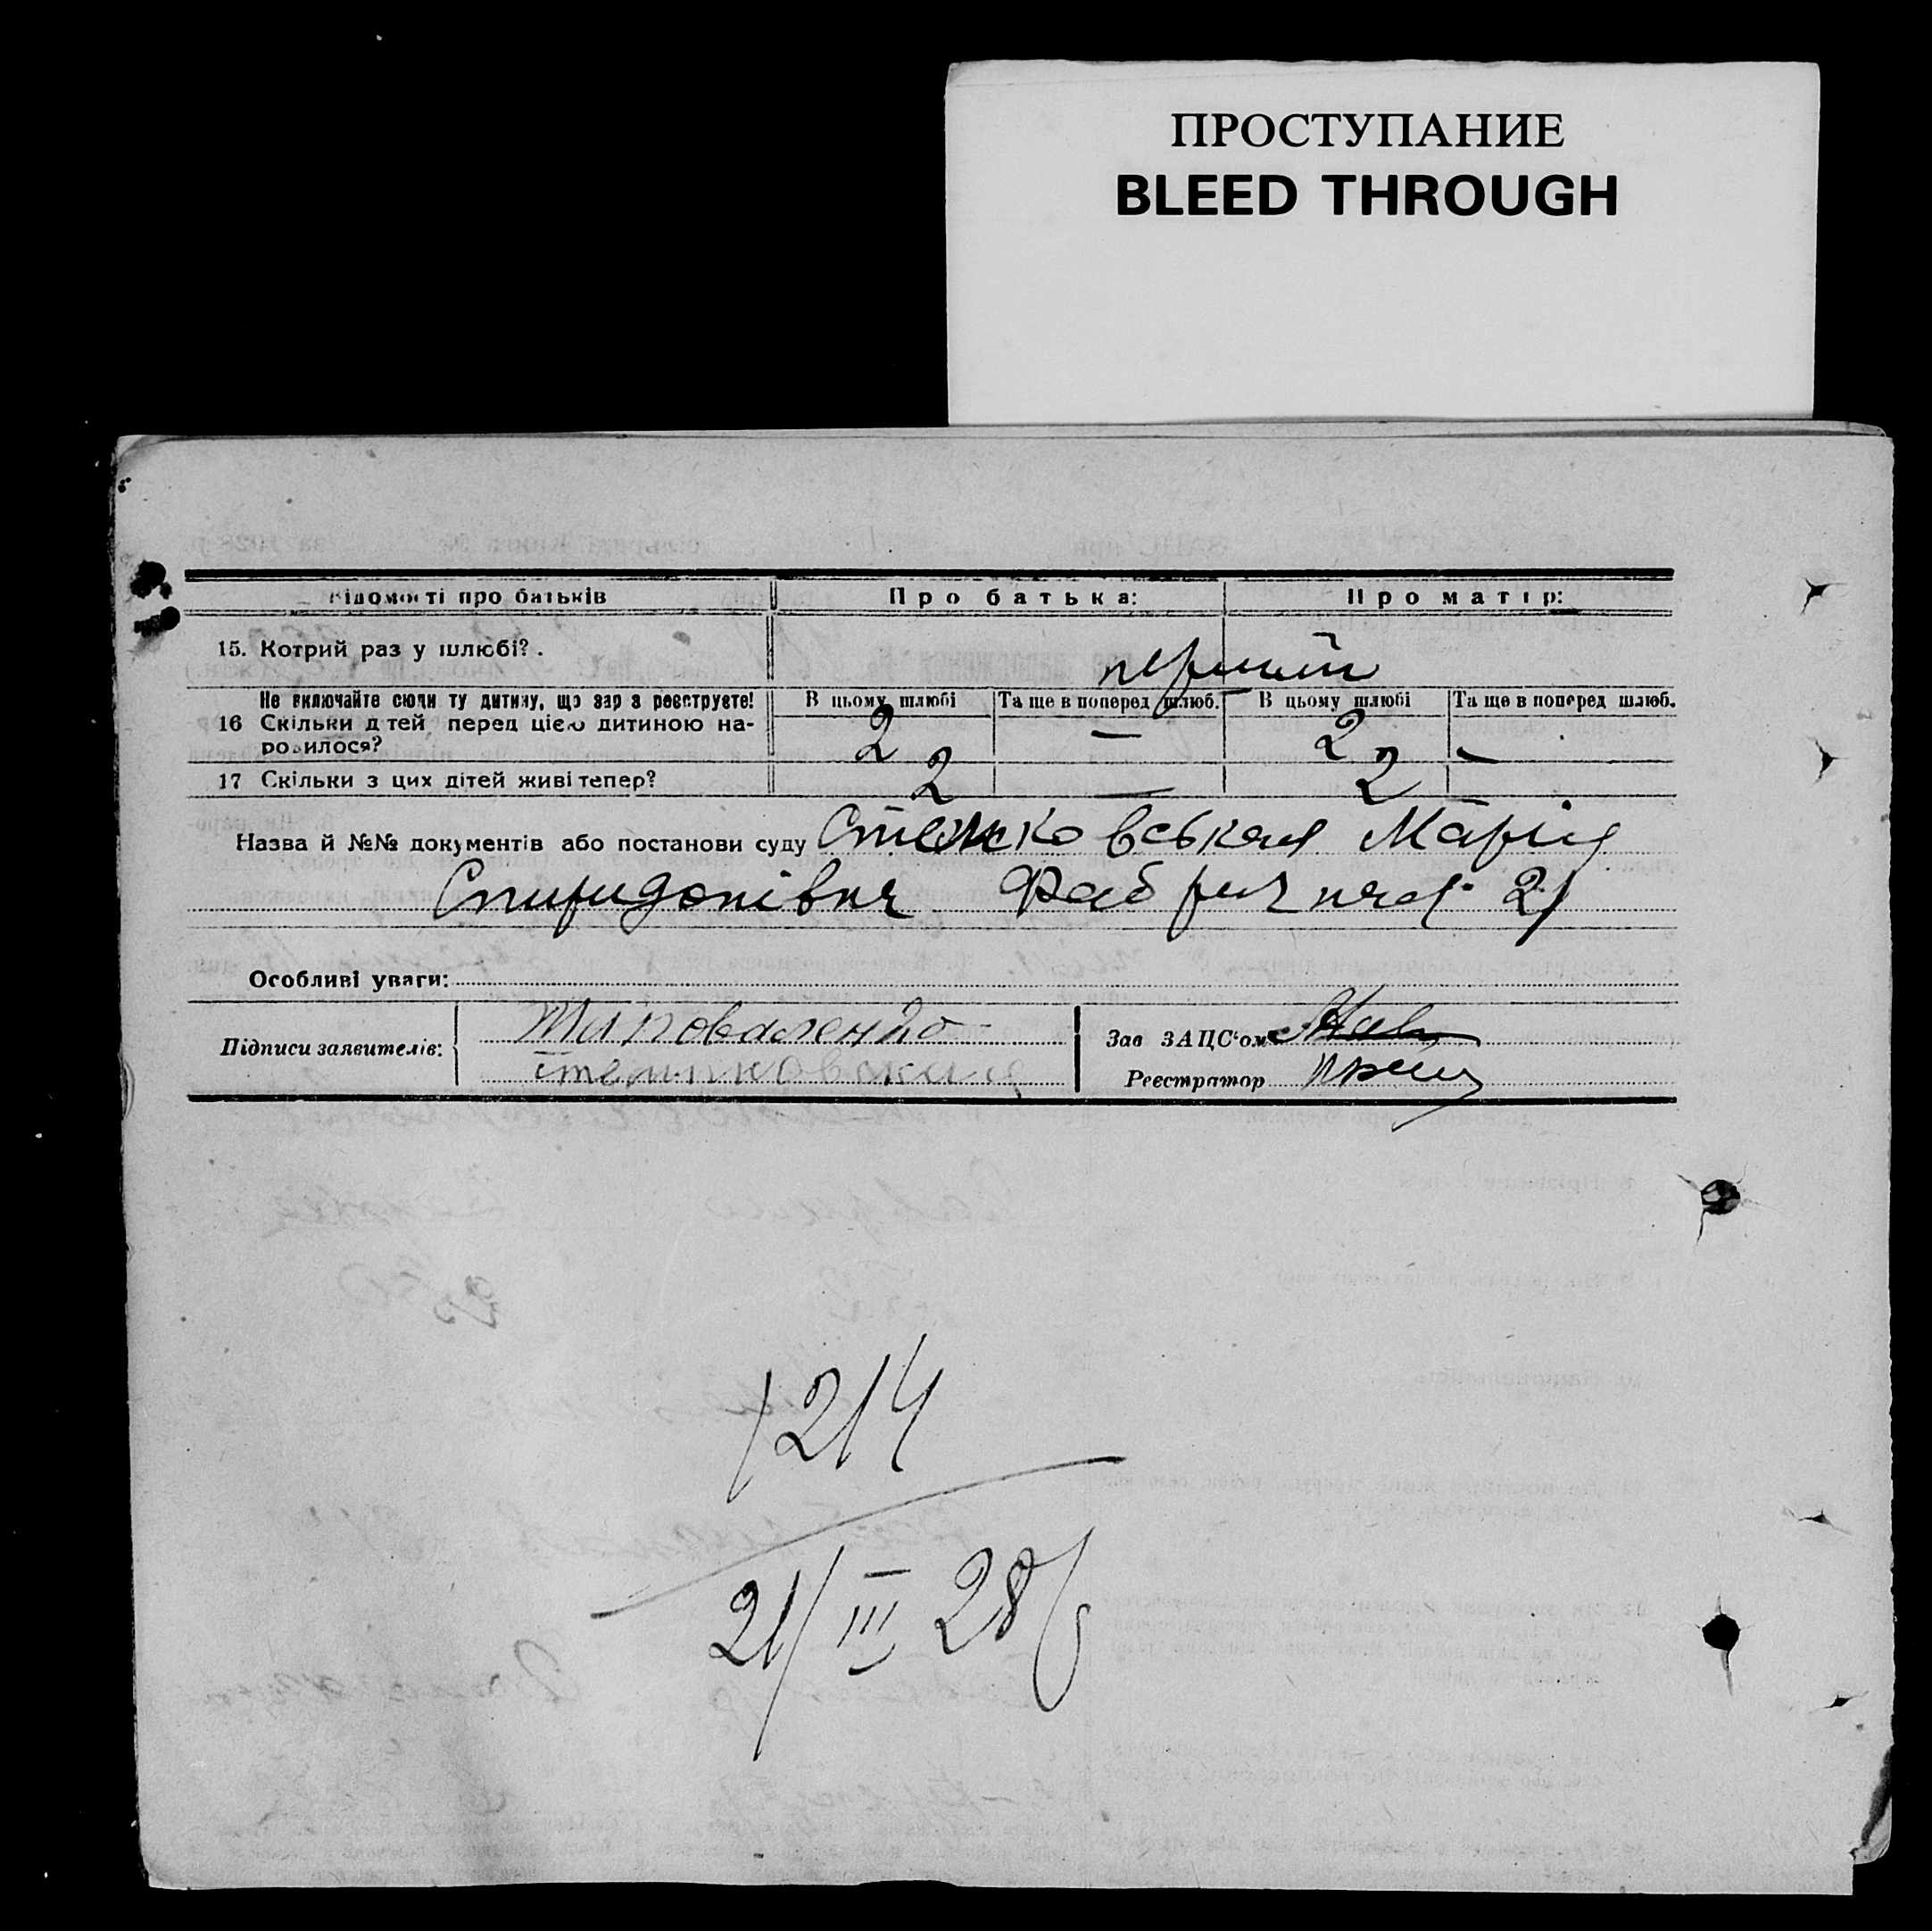 ПРОСТУПАНИЕ
BLEED THROUGH
Відомості про батьків
Про батька:
Про матір:
15. Котрий раз у шлюбі?.
перший
Не включайте сюди ту дитину, що зараз реєструєте!
16 Скільки дітей перед цією дитиною на-
родилося?
В цьому шлюбі
Та ще в поперед шлюб.
В цьому шлюбі
Та ще в поперед шлюб.
2 — 2 —
17 Скільки з цих дітей живі тепер?
2 — 2
Назва й №№ документів або постанови суду Стемковськая Марія
Спиридонівна Фабричная 21
Особливі уваги:
Підписи заявителів:
Шаповаленко
Зав ЗАЦС'ом
Реєстратор
1214
21/III 28